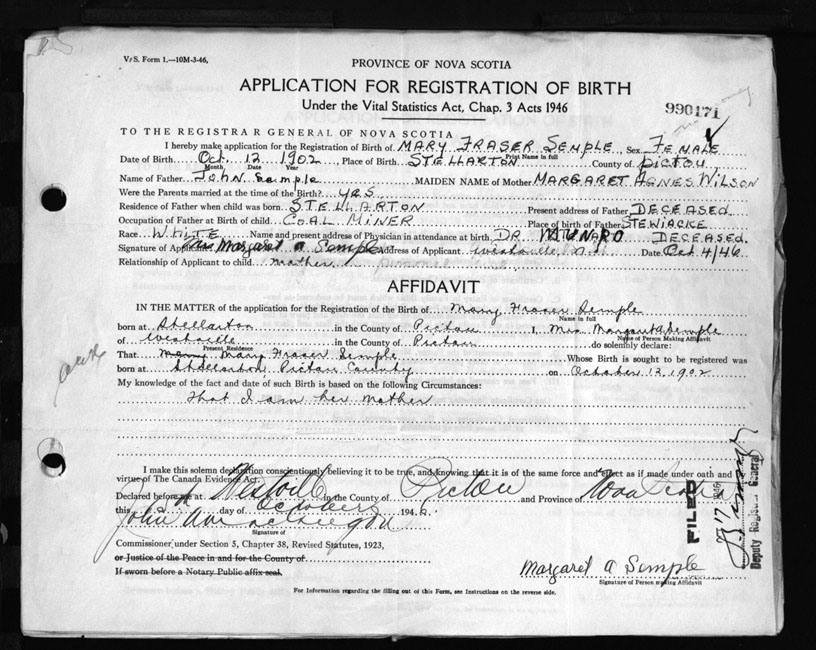 V. S. Form 1.—10M-3-46.
PROVINCE OF NOVA SCOTIA
APPLICATION FOR REGISTRATION OF BIRTH
Under the Vital Statistics Act, Chap. 3 Acts 1946
990171
TO THE REGISTRAR GENERAL OF NOVA SCOTIA
I hereby make application for the Registration of Birth of MARY FRASER SEMPLE, Sex FEMALE
Print Name in full
Date of Birth Oct. 12 1902 Place of Birth STELLARTON County of Pictou
Month Date Year
Name of Father JOHN Semple MAIDEN NAME of Mother MARGARET AGNES WILSON
Were the Parents married at the time of the Birth? YES
Residence of Father when child was born STELLARTON Present address of Father DECEASED
Occupation of Father at Birth of child COAL MINER Place of birth of Father STEWIACKE
Race WHITE Name and present address of Physician in attendance at birth DR. MUNRO DECEASED.
Signature of Applicant Mrs Margaret A Semple Address of Applicant Westville, N.S. Date Oct 4/46
Relationship of Applicant to child mother
AFFIDAVIT
IN THE MATTER of the application for the Registration of Birth of Mary Fraser Semple
Name in full
born at Stellarton in the County of Pictou I, Mrs Margaret A Semple
Name of Person Making Affidavit
of Westville in the County of Pictou do solemnly declare:
Present Residence
That Mary Fraser Semple Whose Birth is sought to be registered was
born at Stellarton, Pictou County on October 12, 1902
My knowledge of the fact and date of such Birth is based on the following Circumstances:
That I am her Mother
I make this solemn declaration conscientiously believing it to be true, and knowing that it is of the same force and effect as if made under oath and by
virtue of The Canada Evidence Act.
Declared before me at Westville in the County of Pictou and Province of Nova Scotia
this day of October 194
John
Signature of
Commissioner under Section 5, Chapter 38, Revised Statutes, 1923,
or Justice of the Peace in and for the County of
If sworn before a Notary Public affix seal.
Margaret A Semple
Signature of Person making Affidavit
For Information regarding the filling out of this Form, see Instructions on the reverse side.
FILED
Deputy Registrar General